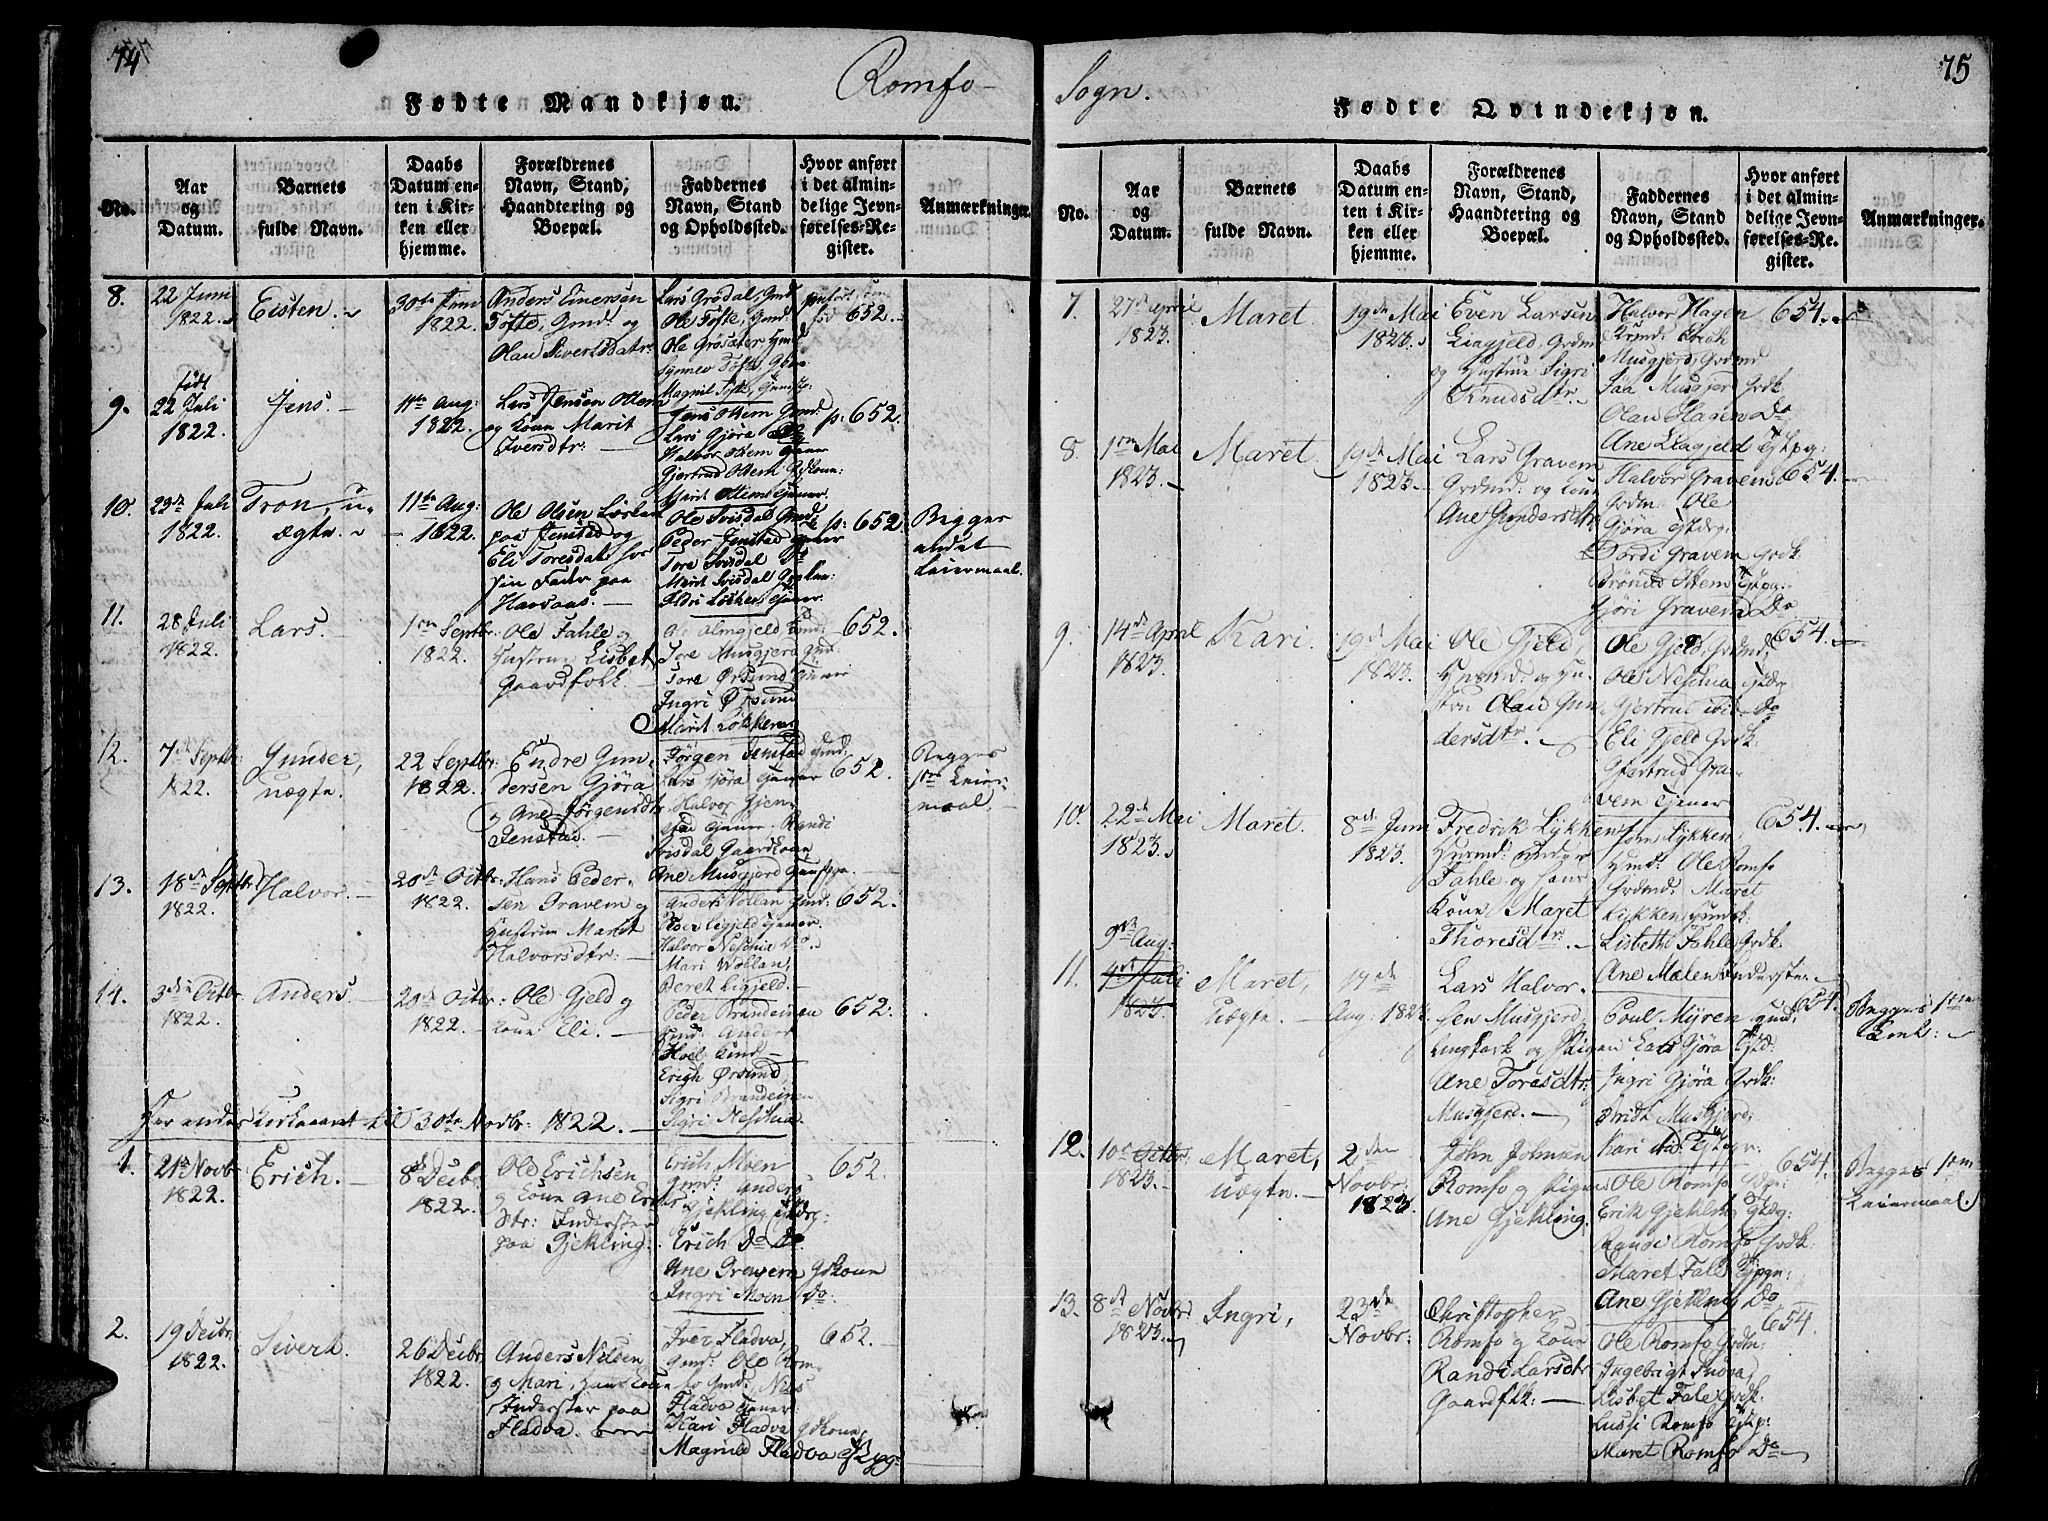 74
Romfo-
Fødte Mandkjøn.
No.
Aar
og
Datum.
Barnets
fulde Navn.
Daabs
Datum en-
ten i Kir-
ken eller
hjemme.
Forældrenes
Navn, Stand,
Haandtering og
Boepæl.
Faddernes
Navn, Stand
og Opholdssted.
Hvor anført
i det almin-
delige Jevn-
førelses-Re-
gister.
Anmærkninger.
8.
22 Juni
1822.
Eisten.
30te Juni
1822.
Anders Einersen
Tofte, Gmd: og
Olau Siversdatr
Lars Grødal, Gmd
Ole Tofte, Gmd:
Ole Grøsæter
Synnev Tofte
Magnil Tofte
652.
9.
født
22 Juli
1822.
Jens.
11te Aug:
1822.
Lars Jensen Ottem
og Kone Marit
Iversdtr:
Jens Ottem Gmd:
Lars Gjøra
Halvor Ottem
Gjertrud Ottem
Marit Ottem
p: 652.
10.
1822.
Tron, u-
ægte.
11te Aug:
1822.
Ole Olsen
paa Jenstad og
Eli Toresdatr hos
sin Fader paa
Hoaaas.
Ole Svisdal Gmd
Peder Jenstad
Tore Svisdal
Marit Svisdal
p: 652
Begges
andet
Leiermaal.
11.
28 Juli
1822.
Lars.
1ste Septbr:
1822.
Ole Fahle og
Hustrue Lisbet
Gaardfolk.
Ole Almgjeld Gmd:
Tore Musgjerd Gmd:
Tore Ørsund
Ingri Ørsund
Marit Løkken
652.
12.
7de Septbr
1822.
Gunder,
uægte.
22 Septbr:
1822.
Endre Gun-
dersen Gjøra
og Ane Jørgensdtr
Jenstad.
Jørgen Jenstad Gmd:
Lars Gjøra
Halvor Gjen-
stad Tjener. Randi
Svisdal Gaardkone,
Ane Musgjerd
652.
Begges
1ste Leier-
maal.
13.
18de Septbr
1822.
Halvor.
20de Octbr:
1822.
Hans Peder-
sen Gravem og
Hustrue Marit
Halvorsdtr:
Anders Vollan Gmd:
Peder Ligjeld Tjener.
Halvor Neschia Do.
Mari Wollan,
Beret Ligjeld.
652.
14.
3die Octbr
1822.
Anders.
20de Octbr:
1822.
Ole Gjeld og
Kone Eli.
Peder Brandeinen
Gmd: Anders
Hoel Gmd
Erich Ørsund,
Sigri Brandeinen
Sigri Neschia.
652.
Her ender Kirkeaaret til 30te Novbr: 1822.
1.
21de Novbr
1822.
Erich.
8de Decbr
1822.
Ole Erichsen
og Kone Ane Erichs-
dtr: Inderster
paa Gjekling.
Erich Moen
Gmd: Anders
Gjekling
Erich Do
Ane Gravem Gdkone
Ingri Moen Do
652.
2.
19 Decbr:
1822.
Sivert.
26 Decbr
1822.
Anders Nilsen
og Mari, hans Kone
Inderster paa
Fladva.
Iver Fladva,
Gmd: Ole Rom-
fo Gmd: Nils
Fladva Tjener.
Kari Fladva Gdkone
Magnild Fladva
652.
75
Sogn.
Fødte Qvindekjøn.
No.
Aar
og
Datum.
Barnets
fulde Navn.
Daabs
Datum en-
ten i Kir-
ken eller
hjemme.
Forældrenes
Navn, Stand,
Haandtering og
Boepæl.
Faddernes
Navn, Stand
og Opholdssted.
Hvor anført
i det almin-
delige Jevn-
førelses-Re-
gister.
Anmærkninger.
7.
27de April
1823.
Maret.
19de Mai
1823.
Even Larsen
Liagjeld, Grdm
og Hustrue Sigri
Knudsdtr.
Halvor Hagen
Grmd: Erich
Musgjerd, Grdmd
Musgjerd Grdk
Olau Hagen Do
Ane Liagjeld
654.
8.
1ste Mai
1823.
Maret.
19de Mai
1823.
Lars Gravem
Grdmd: og Kone
Ane Gundersdtr
Halvor Gravem
Grdm: Ole
Gjøra
Tordi Gravem Grdk.
Brønild Ottem
Sjøri Gravem Do
654.
9.
14de April
1823.
Kari.
19de Mai
1823.
Ole Gjeld,
og Hu-
stru Olau Gun-
dersdtr.
Ole Gjeld, Grdmd,
Ole Neschia
Gjertrud ibid Do
Eli Gjeld Grdk:
Gjertrud Gra-
vem Tjener
654.
10.
22de Mai
1823.
Maret.
8de Juni
1823.
Fredrik Lykken
Huusmd: under
Fahle og hans
Kone Maret
Thoresdtr.
Jon Lykken,
Hmd: Ole Romfo
Grdmd: Maret
Lykken
Lisbeth Fahle Grdk
Ane Mælen Inderste
654.
11.
9de Aug:
4de Juli
1823.
Maret,
Uægte.
17de
Aug: 1823.
Lars Halvor-
sen Musgjerd,
Ungkarl og Pigen
Ane Toresdtr:
Musgjerd.
Poul Myren
Lars Gjøra
Ingri Gjøra Grdk:
Musgjerd
Kari ibid:
654.
Begges 1ste
12.
10de Octbr:
1823.
Maret,
Uægte.
2den
Novbr:
1823.
John Johnsen
Romfo og Pigen
Ane Gjekling.
Ole Romfo
Erik Gjekling
Randi Romfo Grdk:
Maret Fale
Ane Gjekling Do
654.
Begges 1ste
Leiermaal.
13.
8de Novbr
1823.
Ingri,
23de
Novbr:
Christopher
Romfo og Kone
Randi Larsdtr
Gaardflk:
Ole Romfo Grdm:
Ingebrigt Snøva,
Lisbet Fale Grdk:
Lussi Romfo
Maret Romfo Do
654.